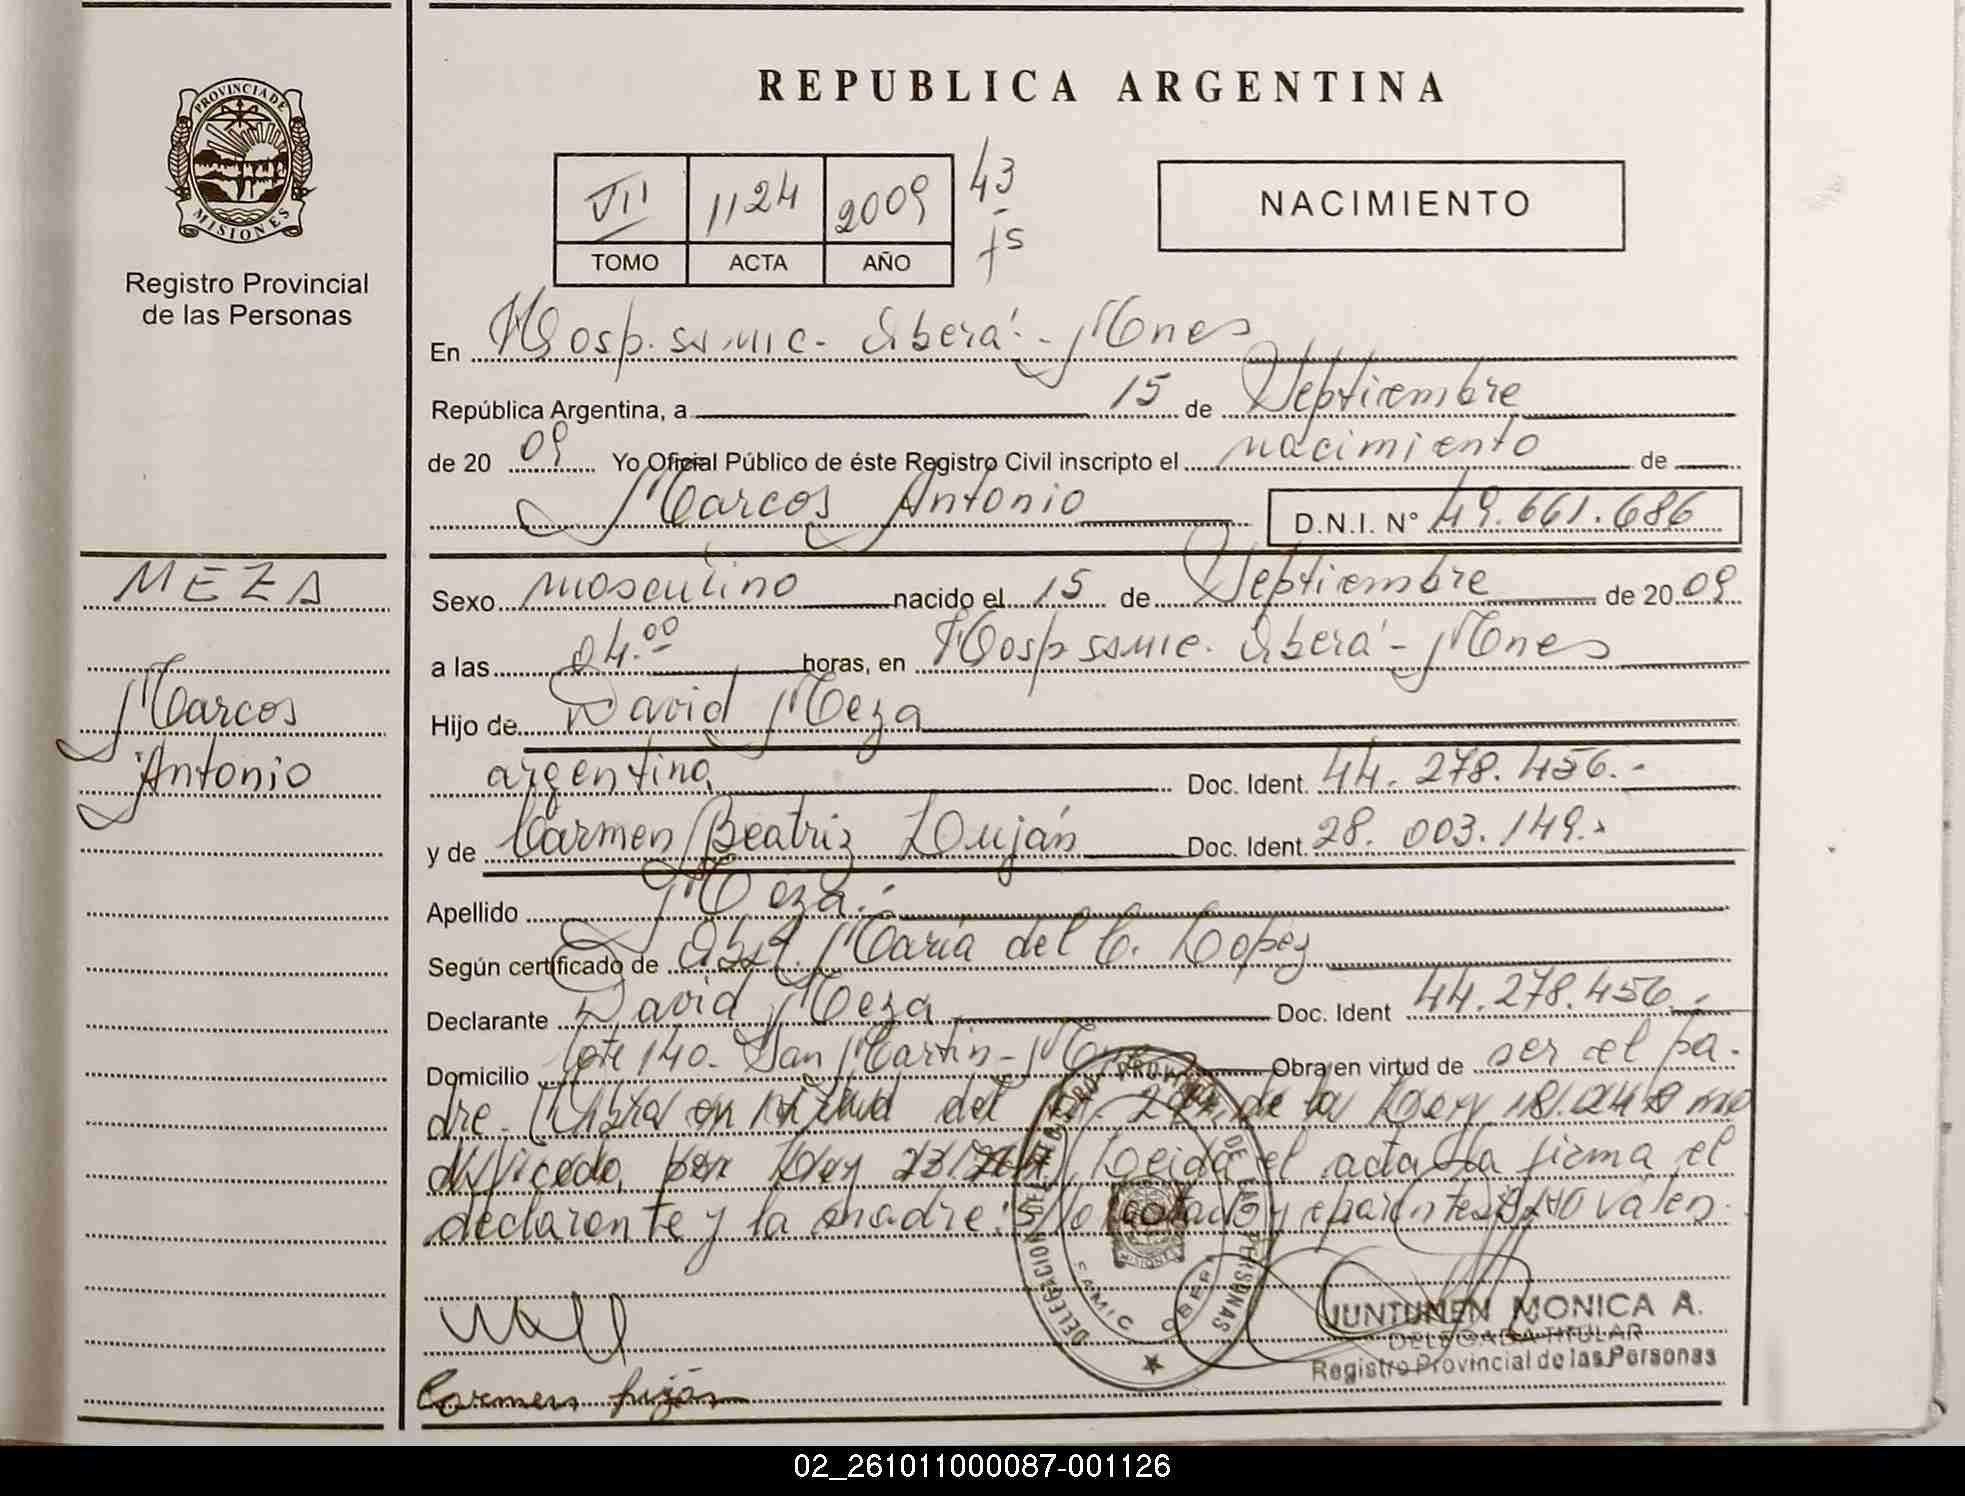 REPUBLICA ARGENTINA
PROVINCIA DE MISIONES
Registro Provincial
de las Personas
VII 1124 2009 43
TOMO ACTA AÑO fs
NACIMIENTO
En Hosp. Samic. Oberá - Mnes
República Argentina, a 15 de Septiembre
de 2009 Yo Oficial Público de éste Registro Civil inscripto el nacimiento de
Marcos Antonio D.N.I. N° 49.661.686
MEZA
Marcos
Antonio
Sexo masculino nacido el 15 de Septiembre de 2009
a las 04.00 horas, en Hosp Samic. Oberá - Mnes
Hijo de David Meza
argentina Doc. Ident. 44.278.456.-
y de Carmen Beatriz Luján Doc. Ident. 28.003.149.-
Apellido Meza.
Según certificado de Obst. María del C. Lopez
Declarante David Meza Doc. Ident 44.278.456.-
Domicilio Lote 140. San Martin - Mnes Obra en virtud de ser el pa-
dre. (Obra en virtud del de la Ley 18.248 mo
dificado por Ley Leida el acta la firma el
declarante y la madre: Lo y eparentesis NO valen.
DELEGACION REGISTRO PROVINCIAL DE LAS PERSONAS
SAMIC OBERA
JUNTUNEN MONICA A.
DELEGADA TITULAR
Registro Provincial de las Personas
Carmen lujan
02_261011000087-001126